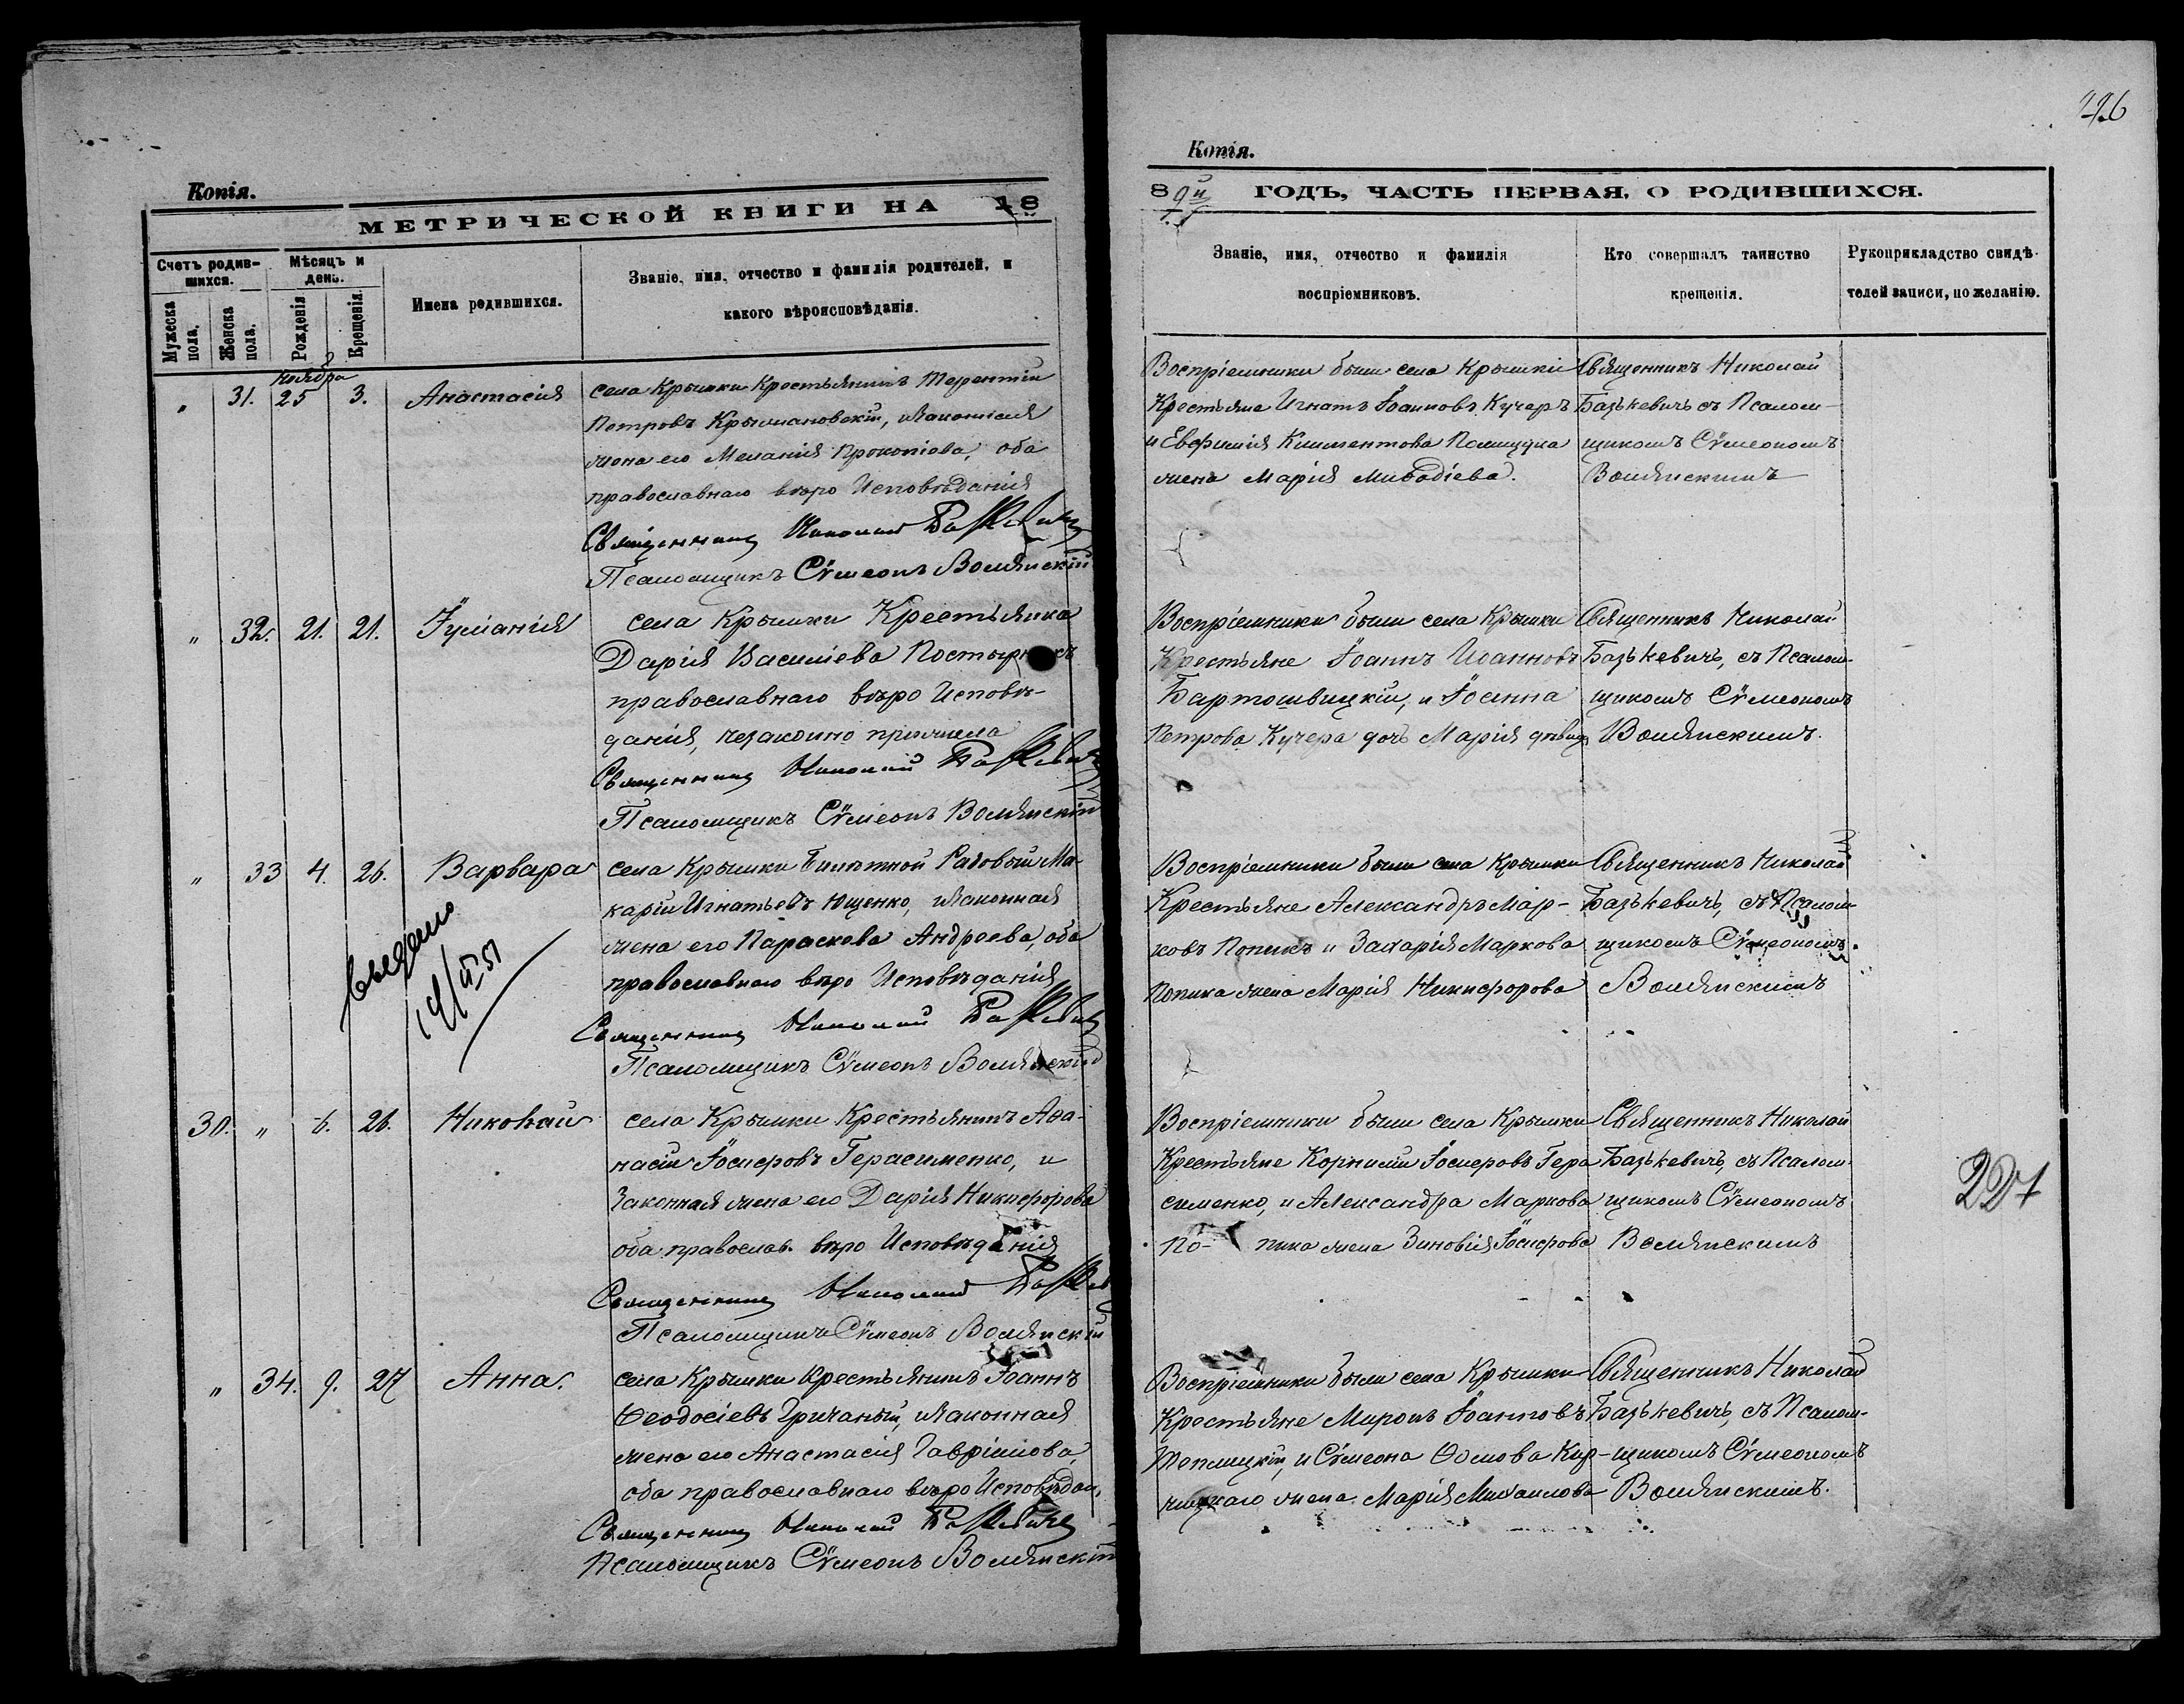 226
Копія.
МЕТРИЧЕСКОЙ КНИГИ НА 18
Счетъ родив-
шихся.
Мужеска пола.
Женска пола.
Мѣсяцъ и
день.
Рожденія
Крещенія.
Имена родившихся.
Званіе, имя, отчество и фамилія родителей, и
какого вѣроисповѣданія.
ноября
" 31. 25 3. Анастасія
села Крымки Крестьянинъ Терентій
Петровъ Крымановскій, изаконная
жена его Меланія Прокопіова, оба
православнаго вѣро Исповѣданія
Священникъ Николай Базькевичъ
Псаломщикъ Сѵмеонъ Волянскій
" 32. 21. 21. Іуліанія
села Крымки Крестьянка
Дарія Василіева
православнаго вѣро Исповѣ-
данія, незаконно прижила
Священникъ Николай Базькевичъ
Псаломщикъ Сѵмеонъ Волянскій
" 33 4. 26. Варвара
села Крымки Билѣтной Рядовый Ма-
карій Игнатьевъ Ющенко, изаконная
жена его Параскева Андреева, оба
православнаго вѣро Исповѣданія
Священникъ Николай Базькевичъ
Псаломщикъ Сѵмеонъ Волянскій
30. " 6. 26. Николай
села Крымки Крестьянинъ Афа-
насій Іосифовъ Герасименко, и
Законная жена его Дарія Никифорова
оба православ. вѣро Исповѣданія
Священникъ Николай Базькев
Псаломщикъ Сѵмеонъ Волянскій
" 34. 9. 27 Анна.
села Крымки Крестьянинъ Іоаннъ
Ѳеодосіевъ Гричаный, изаконная
жена его Анастасія Гавріилова,
оба православнаго вѣро Исповѣдан,
Священникъ Николай Базькевичъ
Псаломщикъ Сѵмеонъ Волянскій
Копія.
8 97 ГОДЪ, ЧАСТЬ ПЕРВАЯ, О РОДИВШИХСЯ.
Званіе, имя, отчество и фамилія
воспріемниковъ.
Кто совершалъ таинство
крещенія.
Рукоприкладство свидѣ-
телей записи, по желанію.
Воспріемники были села Крымки
Крестьяне Игнатъ Іоанновъ Кучеръ
и Евфимія Климентова
жена Марія Миѳодіева.
Священникъ Николай
Базькевичъ съ Псалом-
щикомъ Сѵмеономъ
Волянскимъ
Воспріемники были села Крымки
Крестьяне Іоаннъ Иоанновъ
Бартошвицкій, и Іоанна
Петрова Кучера дочь Марія дѣвица
Священникъ Николай
Базькевичъ, съ Псалом-
щикомъ Сѵмеономъ
Волянскимъ.
Воспріемники были села Крымки
Крестьяне Александръ Мар-
ковъ Попикъ и Захарія Маркова
Попика жена Марія Никифорова
Священникъ Николай
Базькевичъ, съ Псалом-
щикомъ Сѵмеономъ
Волянскимъ
Воспріемники были села Крымки
Крестьяне Корнилій Іосифовъ Гера
сименко, и Александра Маркова
По- пика жена Зиновія Іосифова
Священникъ Николай
Базькевичъ, съ Псалом-
щикомъ Сѵмеономъ
Волянскимъ
227
Воспріемники были села Крымки
Крестьяне Миронъ Іоанновъ
Теплицкій, и Сѵмеона Ѳомова Кир-
жена Марія Михаилова
Священникъ Николай
Базькевичъ, съ Псалом-
щикомъ Сѵмеономъ
Волянскимъ.